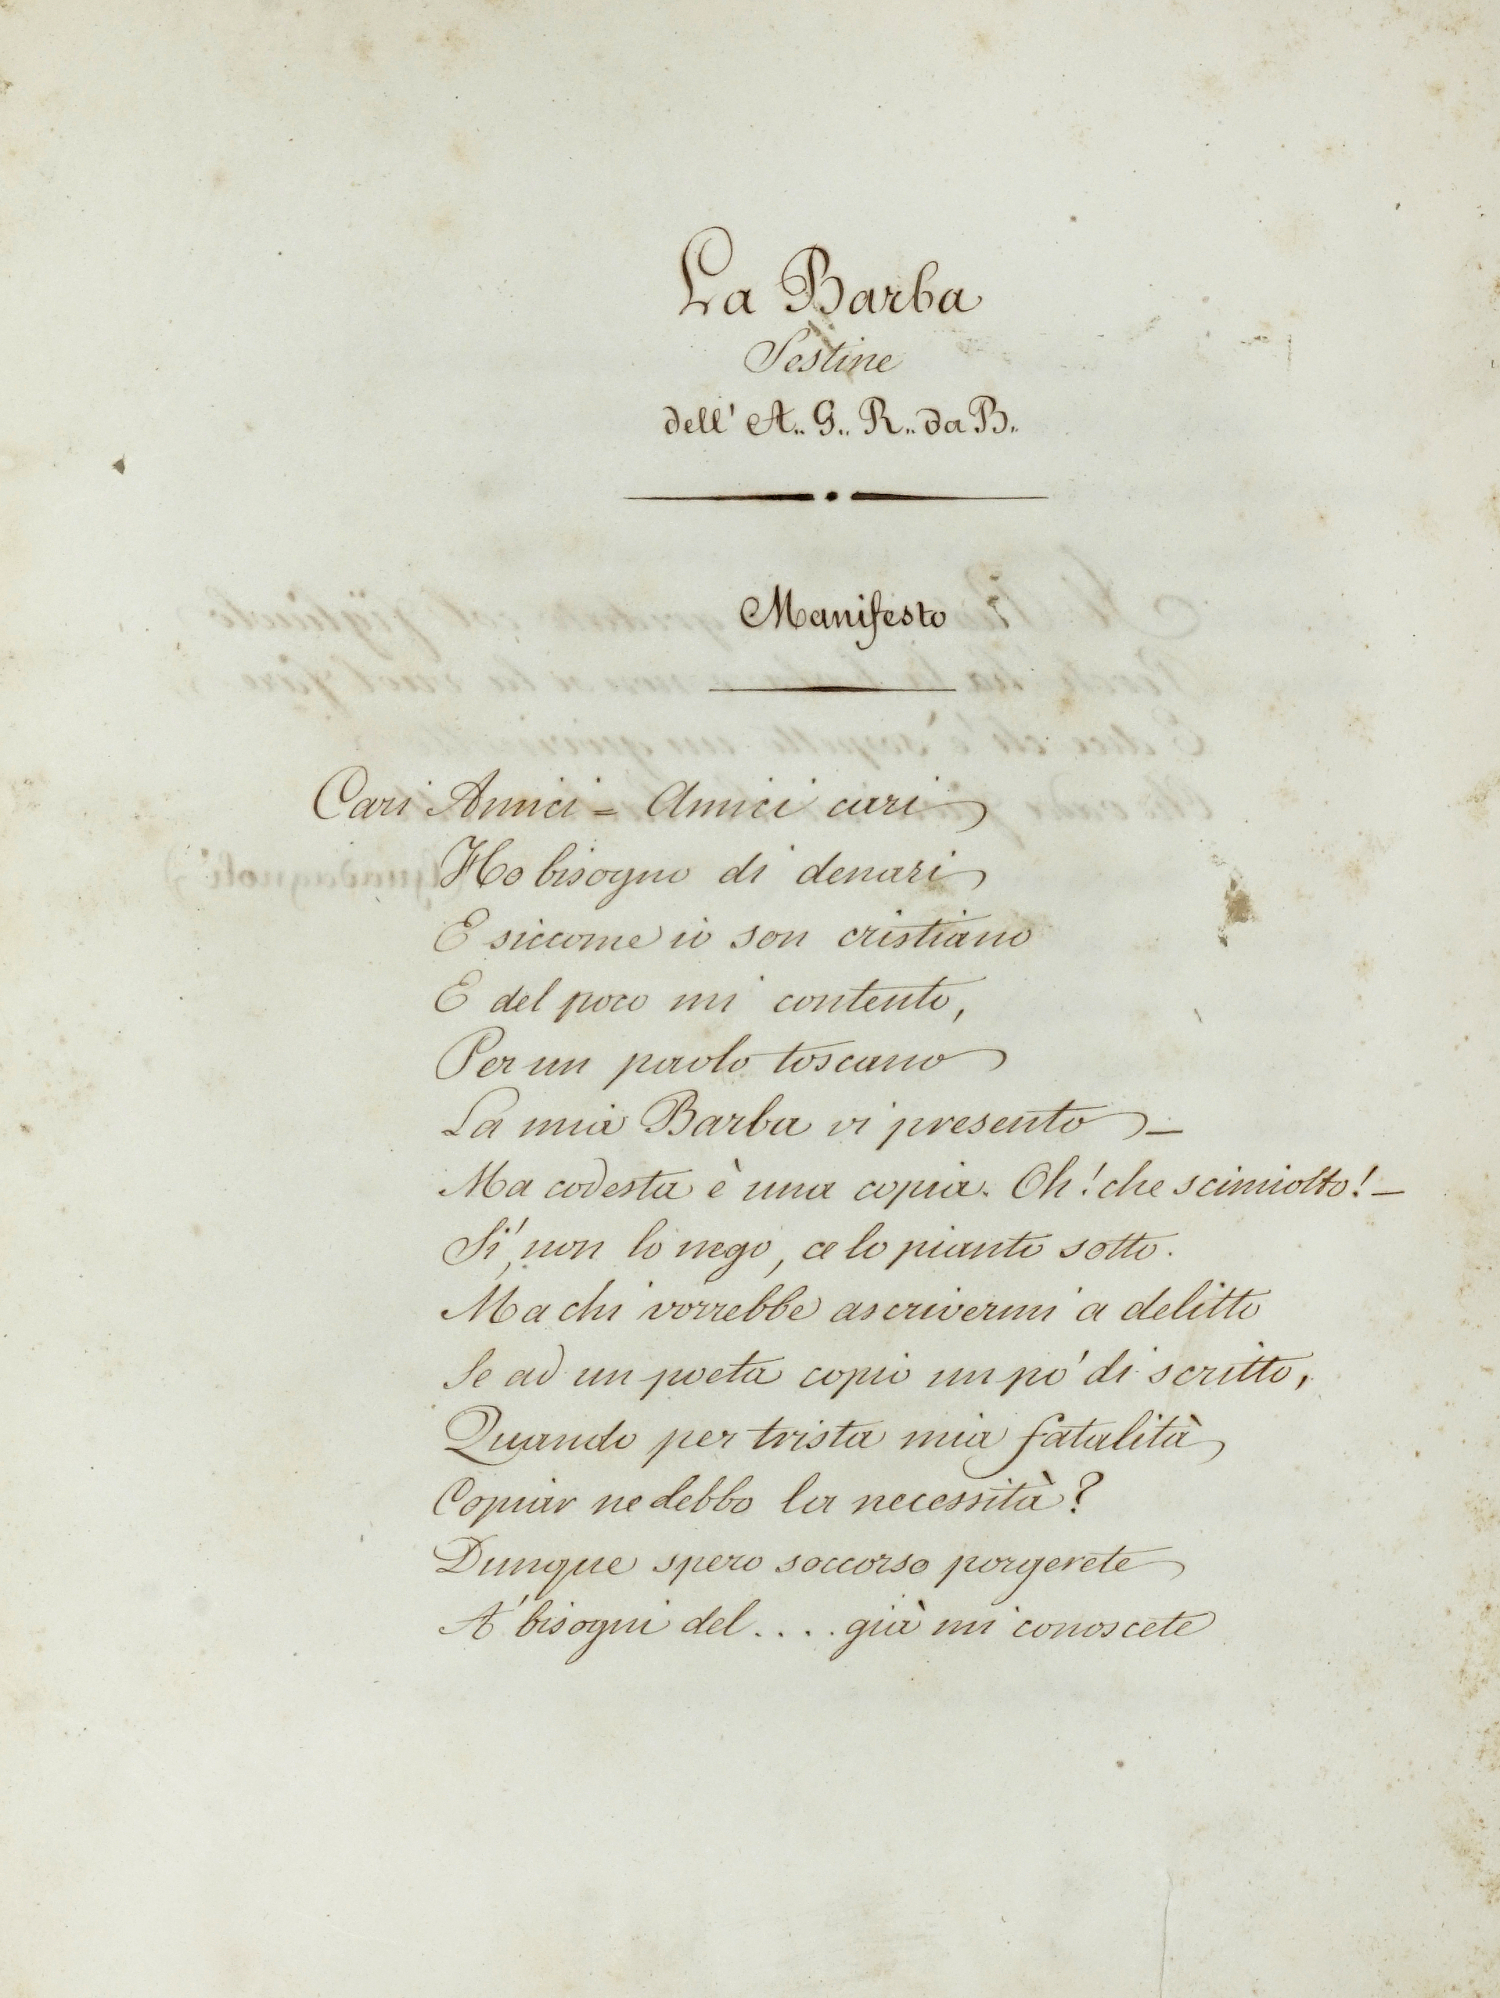 La Barba
Sestine
dell' A.. G.. R.. da B..
Manifesto
Cari Amici = Amici cari
Ho bisogno di denari
E siccome io son cristiano
E del poco mi contento,
Per un paolo toscano
La mia Barba vi presento —
Ma codesta è una copia. Oh! che scimiotto! —
Si', non lo nego, ce lo pianto sotto.
Ma chi vorrebbe ascrivermi a delitto
Se ad un poeta copio un po' di scritto,
Quando per trista mia fatalità
Copiar ne debbo la necessità?
Dunque spero soccorso porgerete
A' bisogni del.... già mi conoscete